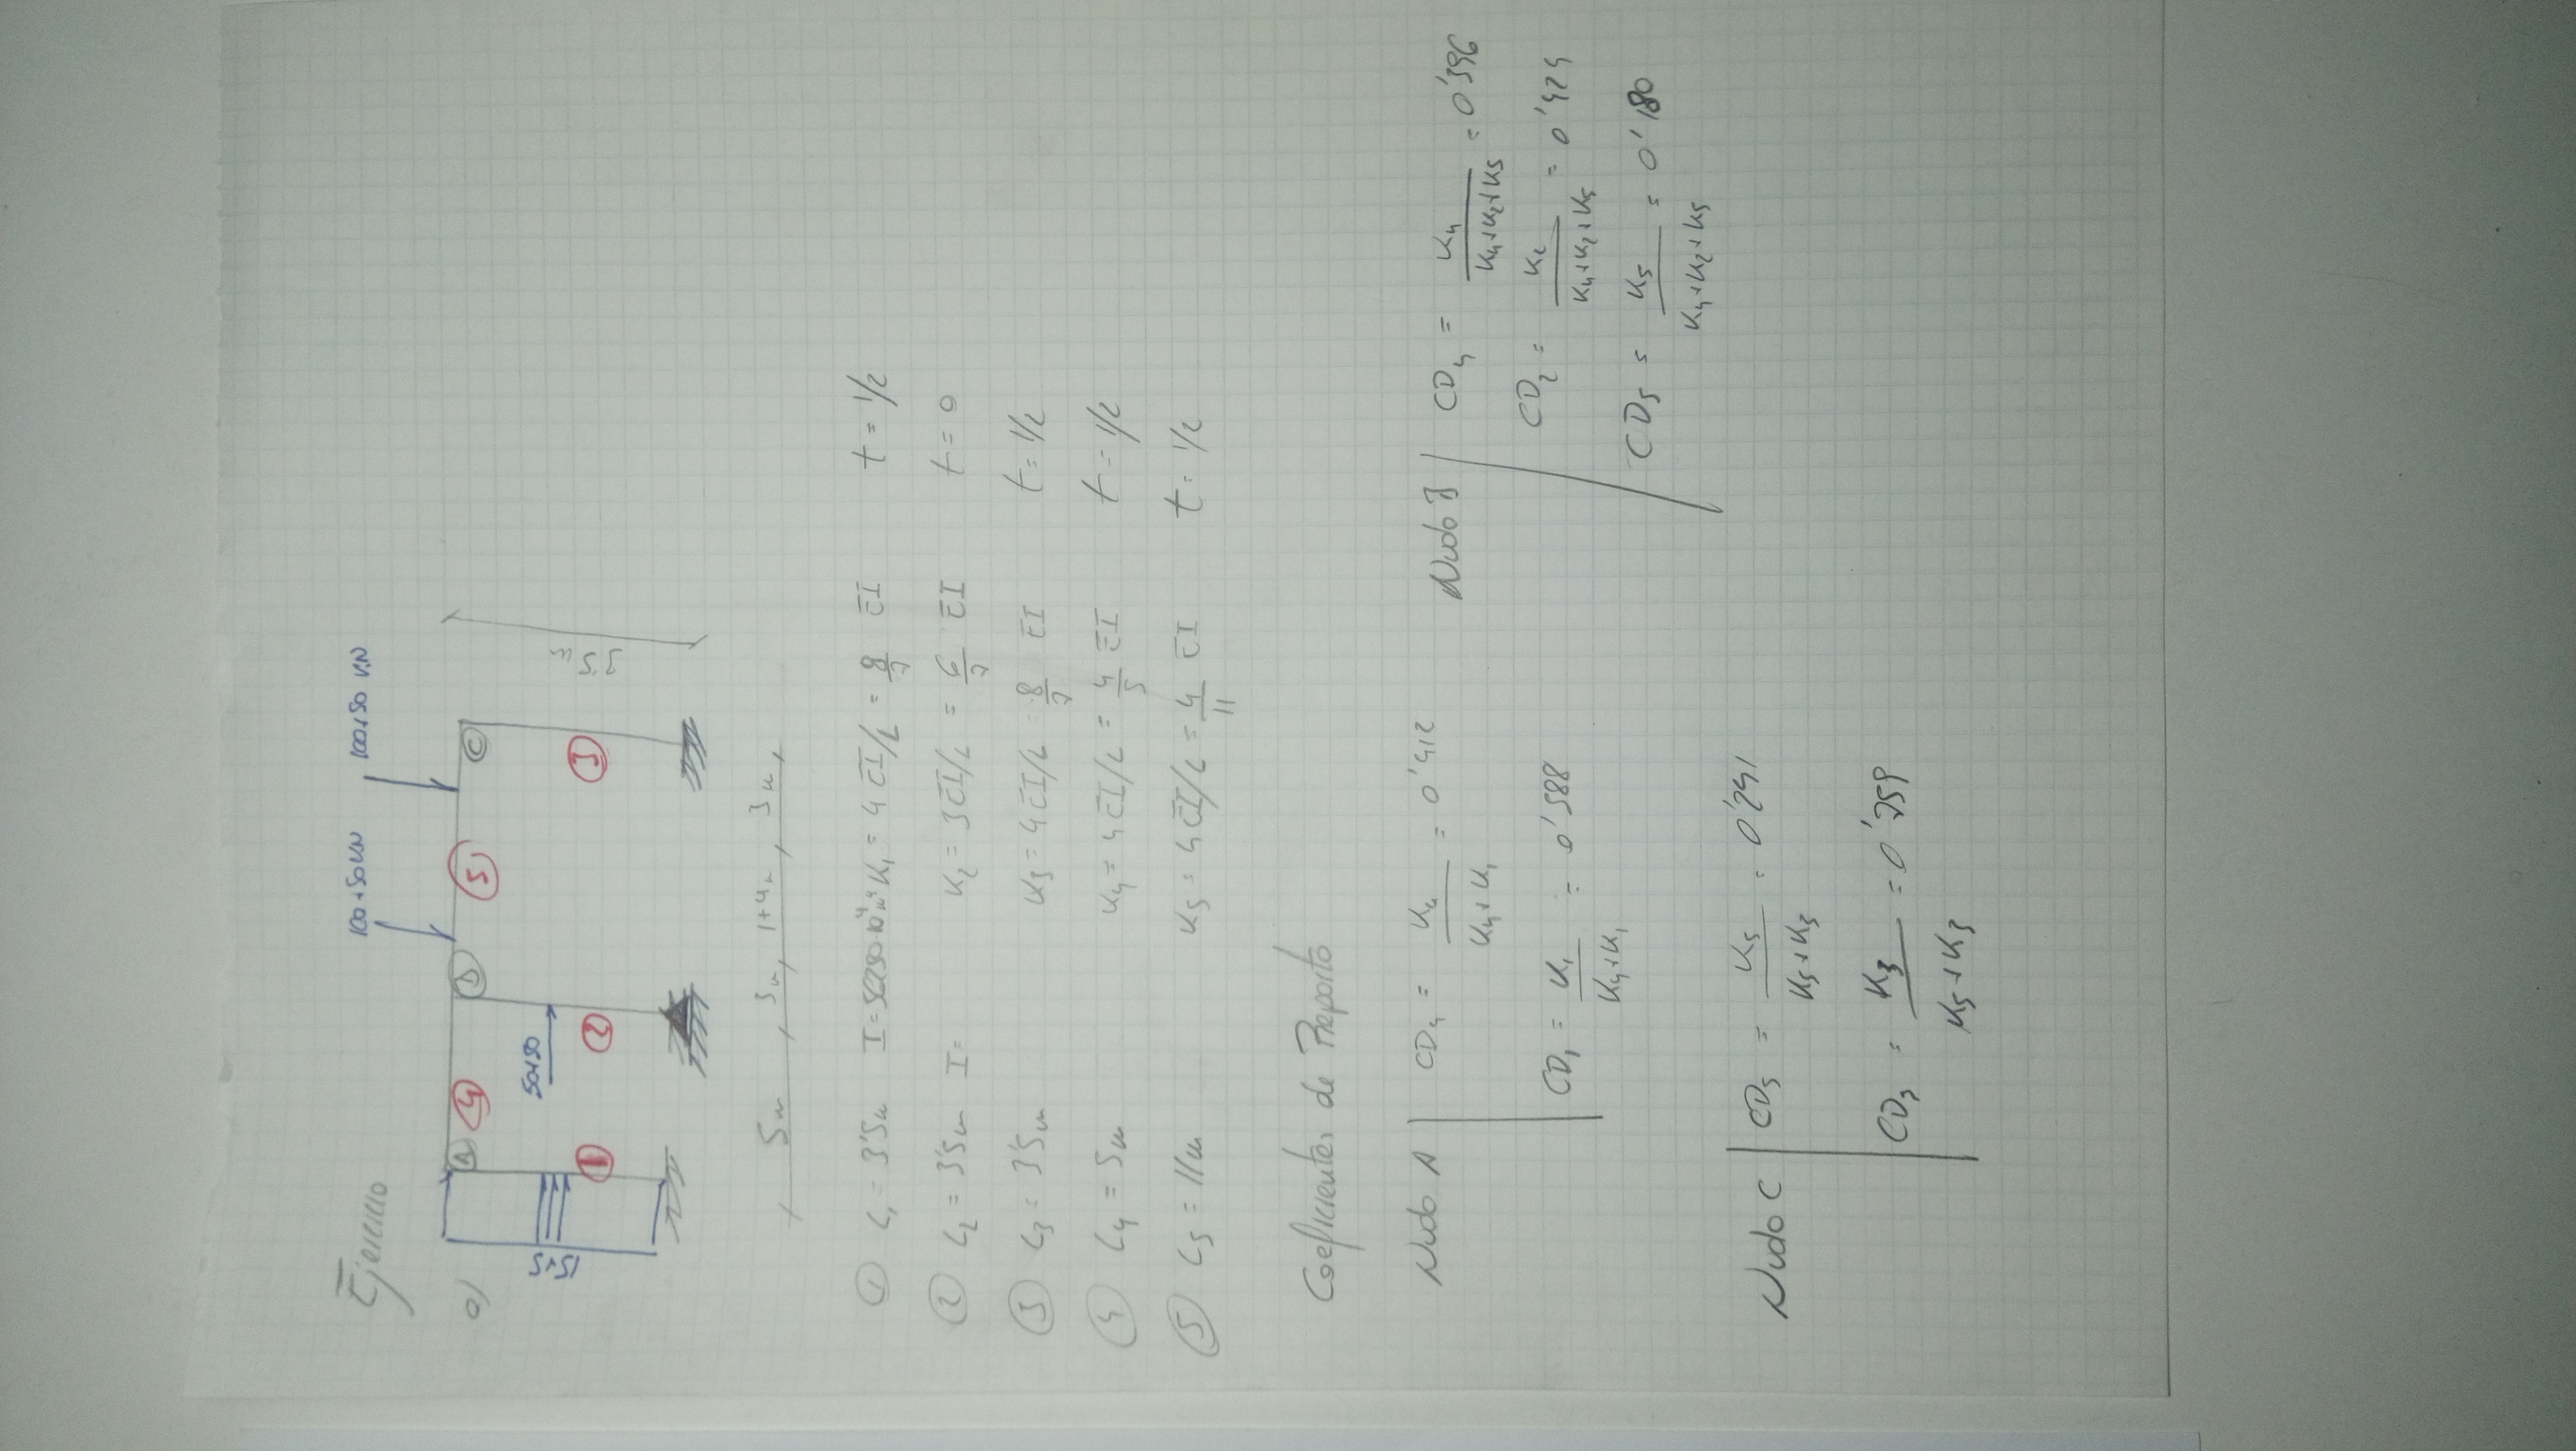 Ejercicio
a)
100+50 KN
100+50 KN
A
4
B
5
C
50+50
1
2
3
3'5 m
5m, 3m, 1+4m, 3m,
① L₁ = 3'5m I = 50250·10⁻⁴ m⁴ K₁ = 4EI/L = 8/7 EI t = 1/2
② L₂ = 3'5m I = K₂ = 3EI/L = 6/7 EI t = 0
③ L₃ = 3'5m K₃ = 4EI/L = 8/7 EI t = 1/2
④ L₄ = 5m K₄ = 4EI/L = 4/5 EI t = 1/2
⑤ L₅ = 11m K₅ = 4EI/L = 4/11 EI t = 1/2
Coeficientes de Reparto
Nudo A CD₄ = K₄/(K₄+K₁) = 0'412
CD₁ = K₁/(K₄+K₁) = 0'588
Nudo B CD₄ = K₄/(K₄+K₂+K₅) = 0'396
CD₂ = K₂/(K₄+K₂+K₅) = 0'424
CD₅ = K₅/(K₄+K₂+K₅) = 0'180
Nudo C CD₅ = K₅/(K₅+K₃) = 0'241
CD₃ = K₃/(K₅+K₃) = 0'759